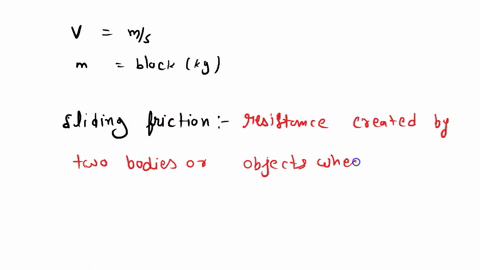 V = m/s
m = block (kg)
sliding friction :- resistance created by
two bodies or objects whe